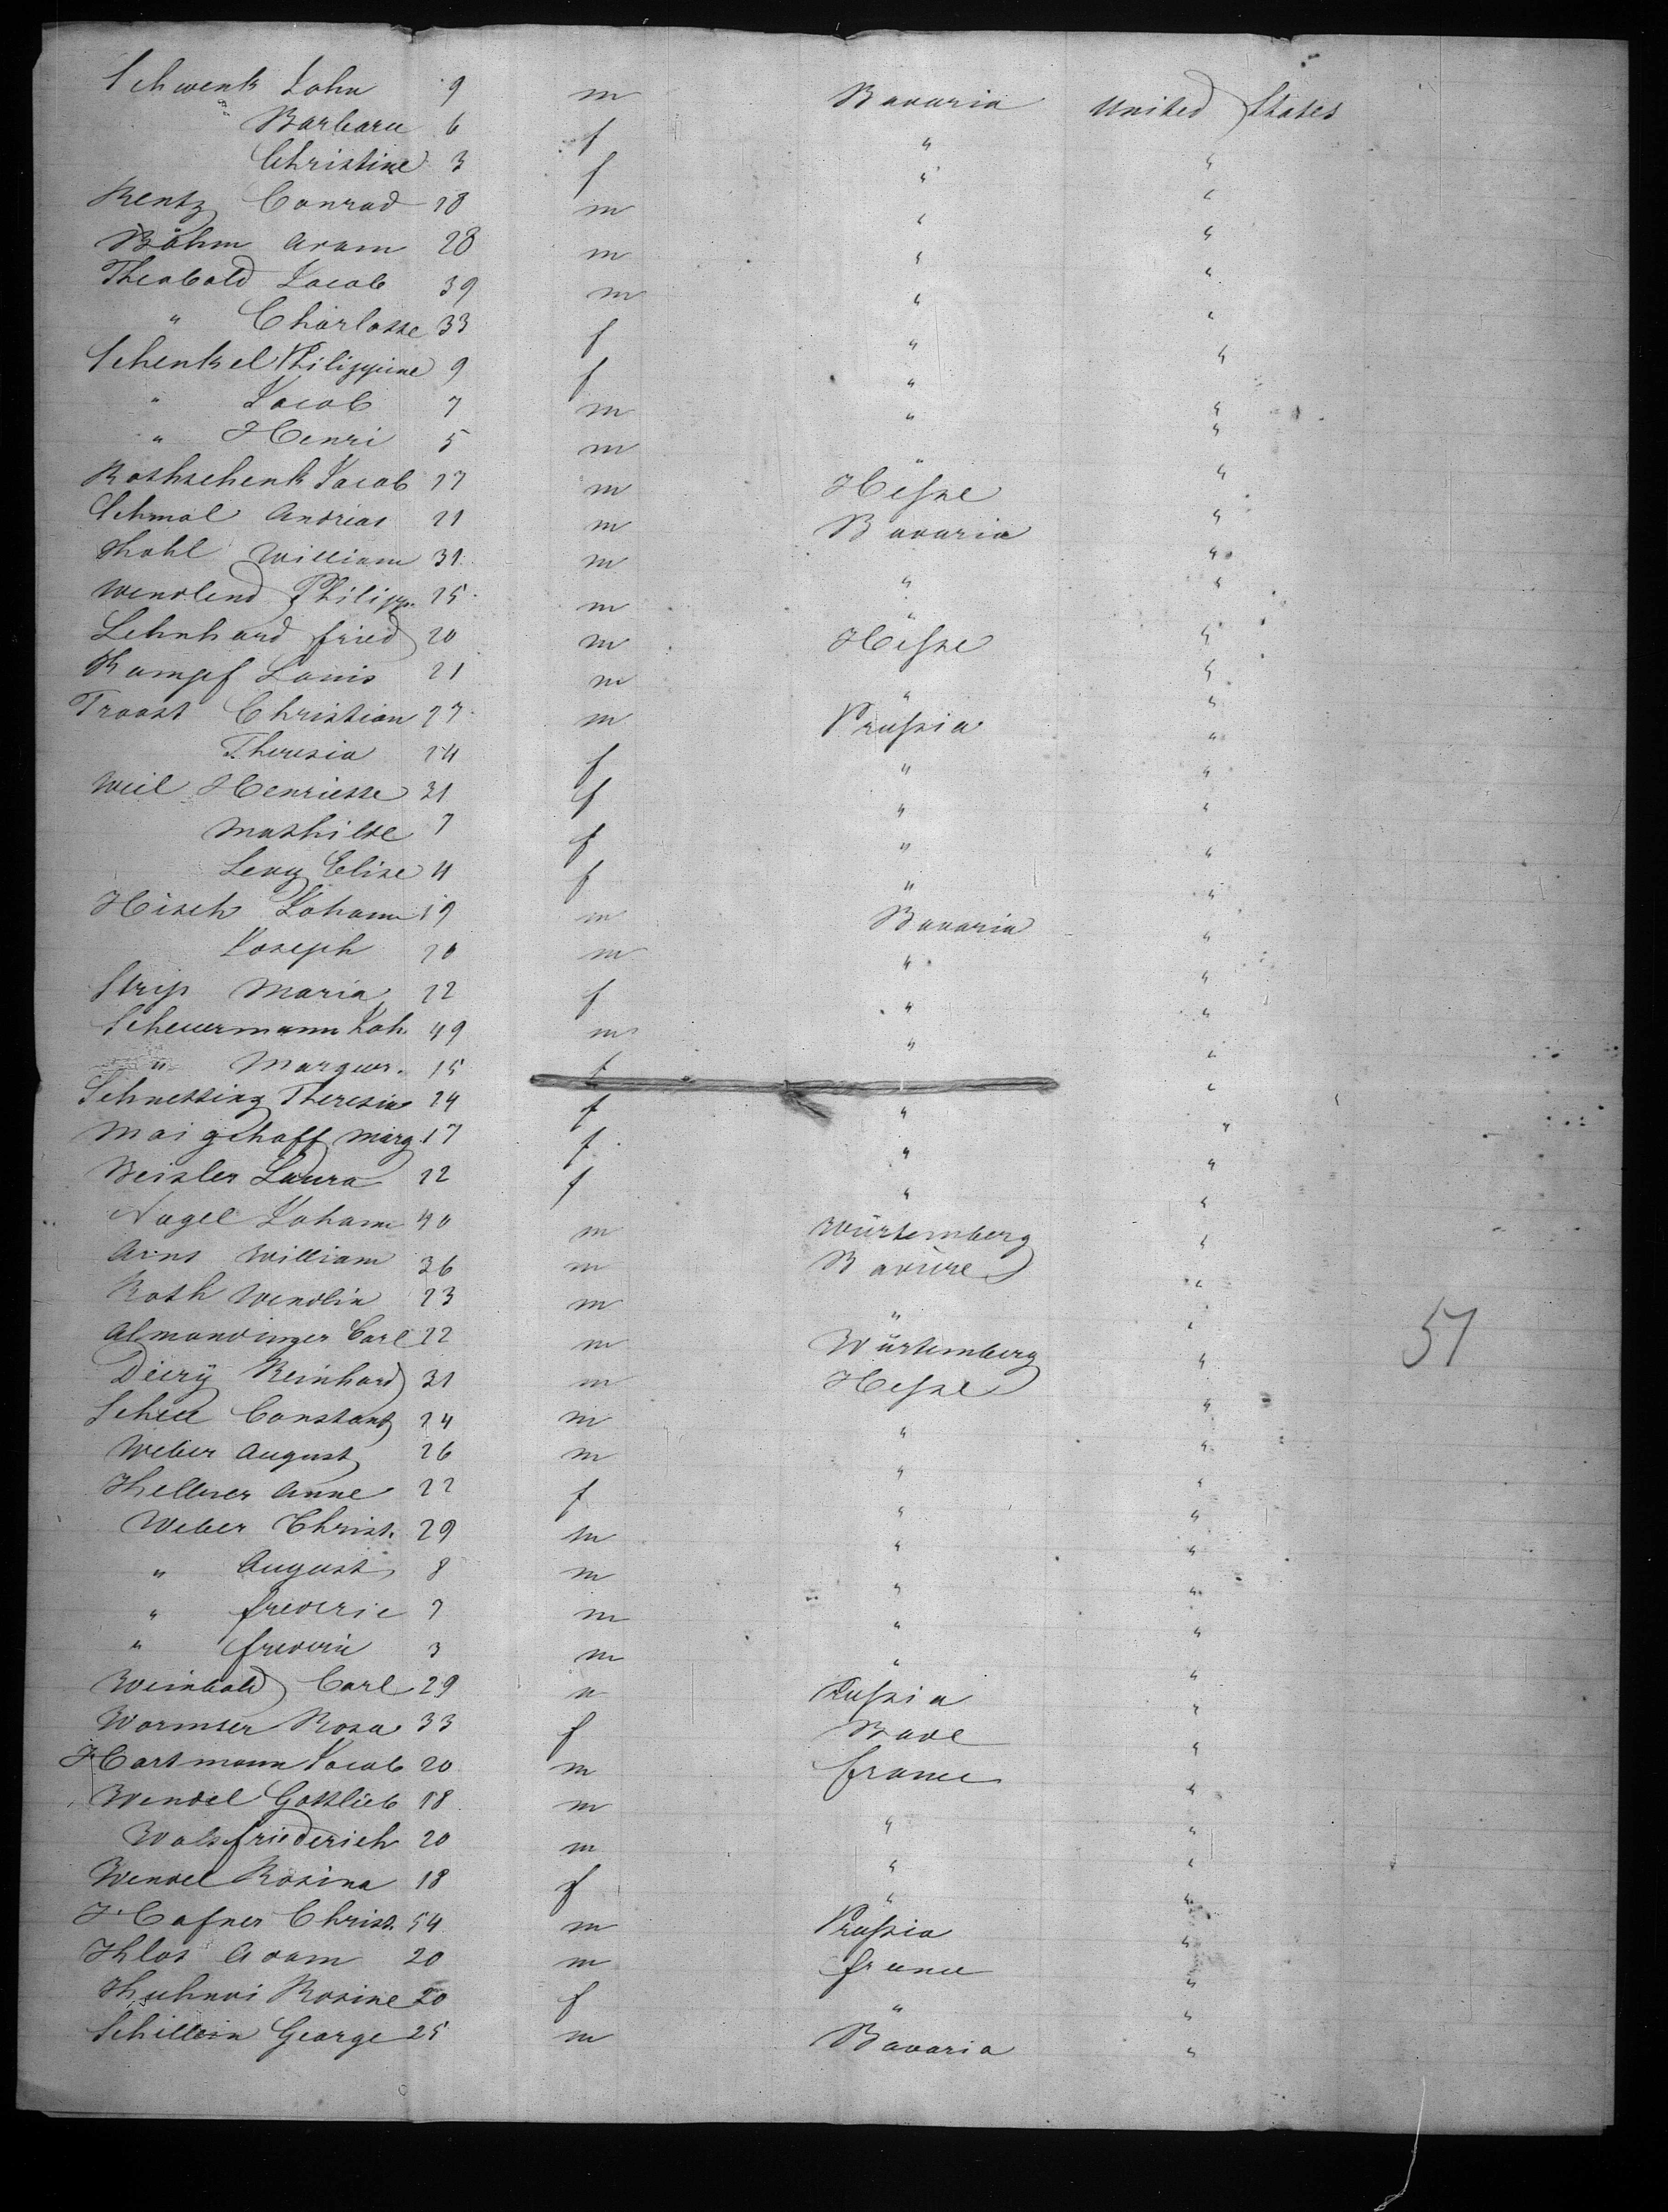 Schwenk John 9 m Bavaria United States
" Barbara 6 f " "
Christine 3 f " "
Rentz Conrad 18 m " "
Böhm Adam 28 m " "
Theobald Jacob 39 m " "
" Charlotte 33 f " "
Schenkel Philippine 9 f " "
" Jacob 7 m " "
" Henri 5 m " "
Rothschenk Jacob 27 m Hesse "
Schmal Andreas 21 m Bavaria "
Kohl William 31 m " "
Wendlend Philipp 25 m " "
Lehnhard fried 20 m Hesse "
Kampf Louis 21 m " "
Troost Christian 27 m Prussia "
Theresia 24 f " "
Weil Henriette 31 f " "
Mathilde 7 f " "
Levy Elise 4 f " "
Hirsch Johann 19 m Bavaria "
Joseph 20 m " "
Strip Maria 22 f " "
Scheuermann Joh. 49 m " "
" Marguer. 15 f "
Schnetting Theresia 24 f " "
Maigehoff Marg. 17 f " "
Beisler Laura 22 f " "
Nagel Johann 40 m Würtemberg "
Arns William 36 m Baviere "
Roth Wendlin 23 m " "
Almandinger Carl 22 m Würtemberg "
Diery Reinhard 31 m Hesse "
Schell Constant 24 m " "
Weber August 26 m " "
Kellner Anne 22 f " "
Weber Christ. 29 m " "
" August 8 m " "
" frederic 7 m " "
" frederic 3 m " "
Weinbold Carl 29 m "
Wormser Rosa 33 f Bade "
Hartmann Jacob 20 m france "
Wendel Gottlieb 18 m " "
Walz friederich 20 m " "
Wendel Rosina 18 f " "
Hafner Christ. 54 m Prussia "
Klos Adam 20 m france "
Rosine 20 f " "
Schillein George 25 m Bavaria "
51